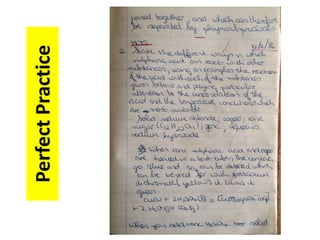 Perfect Practice
joined together, and which can therefore
be separated by physical processes
State the different ways in which
sulphuric acid can react with other
substances, using as examples the reaction
of the acid with each of the substances
given below and paying particular
attention to the concentration of the
acid and the temperature conditions which
are most suitable
Solid sodium chloride, copper, cane
sugar (C12H22O11), zinc, aqueous
sodium hydroxide
When conc sulphuric acid and copper
are heated in a test-tube, the contents
go blue and SO2 can be detected which
can be tested for with potassium
dichromate (yellow) it turns it
green.
+ 2H2O(l) + SO2(g)
When you add conc to solid